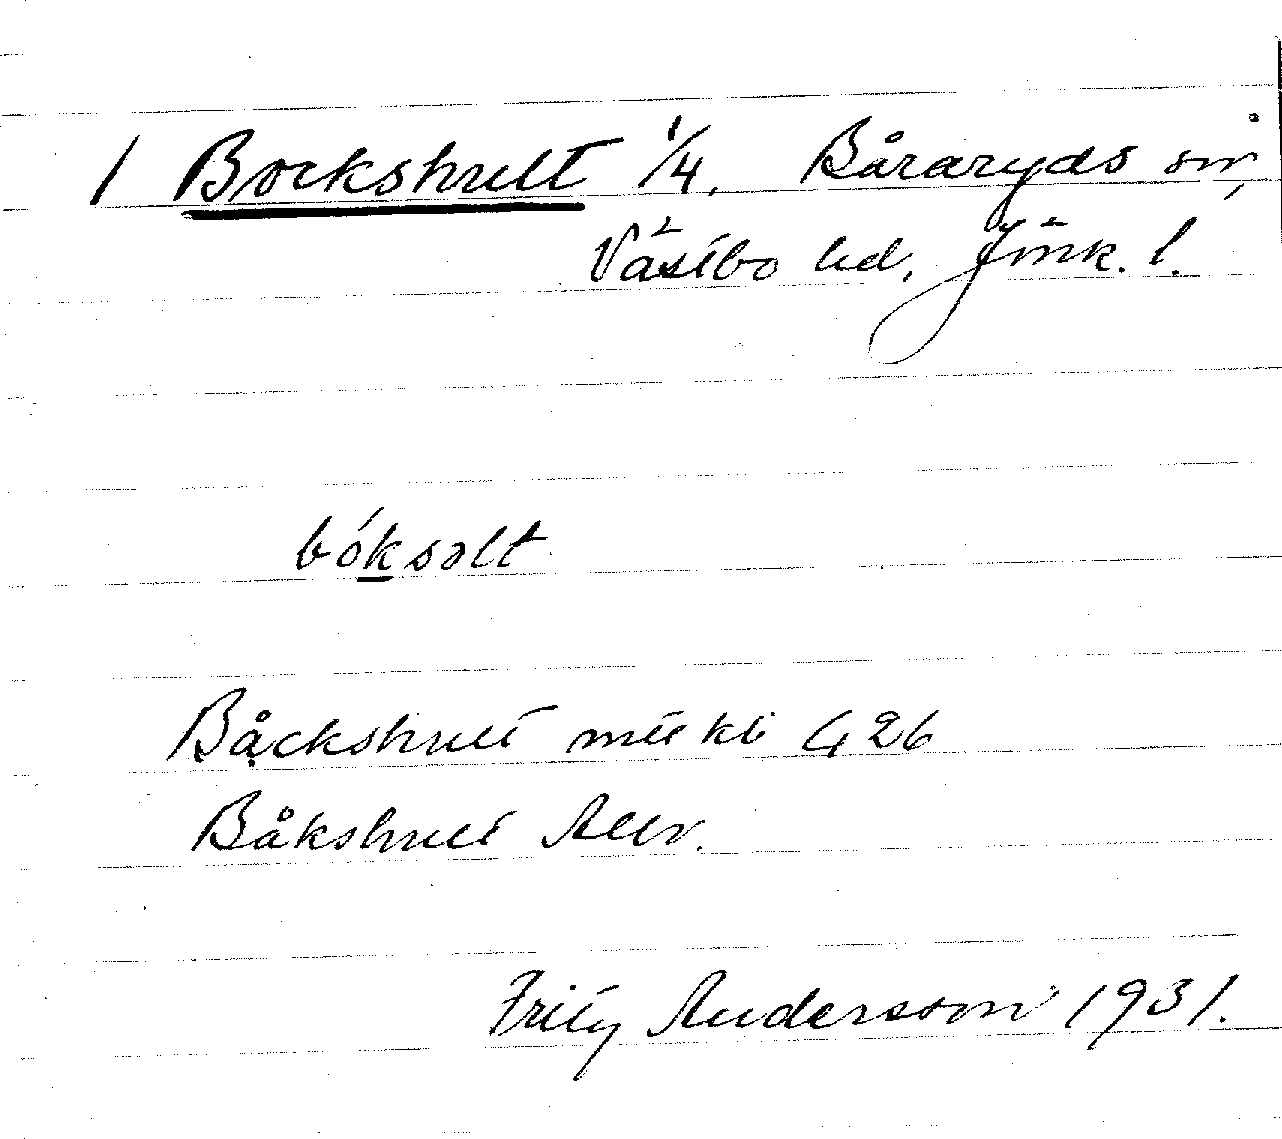 1 Bockshult 1/4. Båraryds sn,
Västbo hd, Jönk. l.
bóksolt
Båckshult 426
Båkshult
Fritz Andersson 1931.